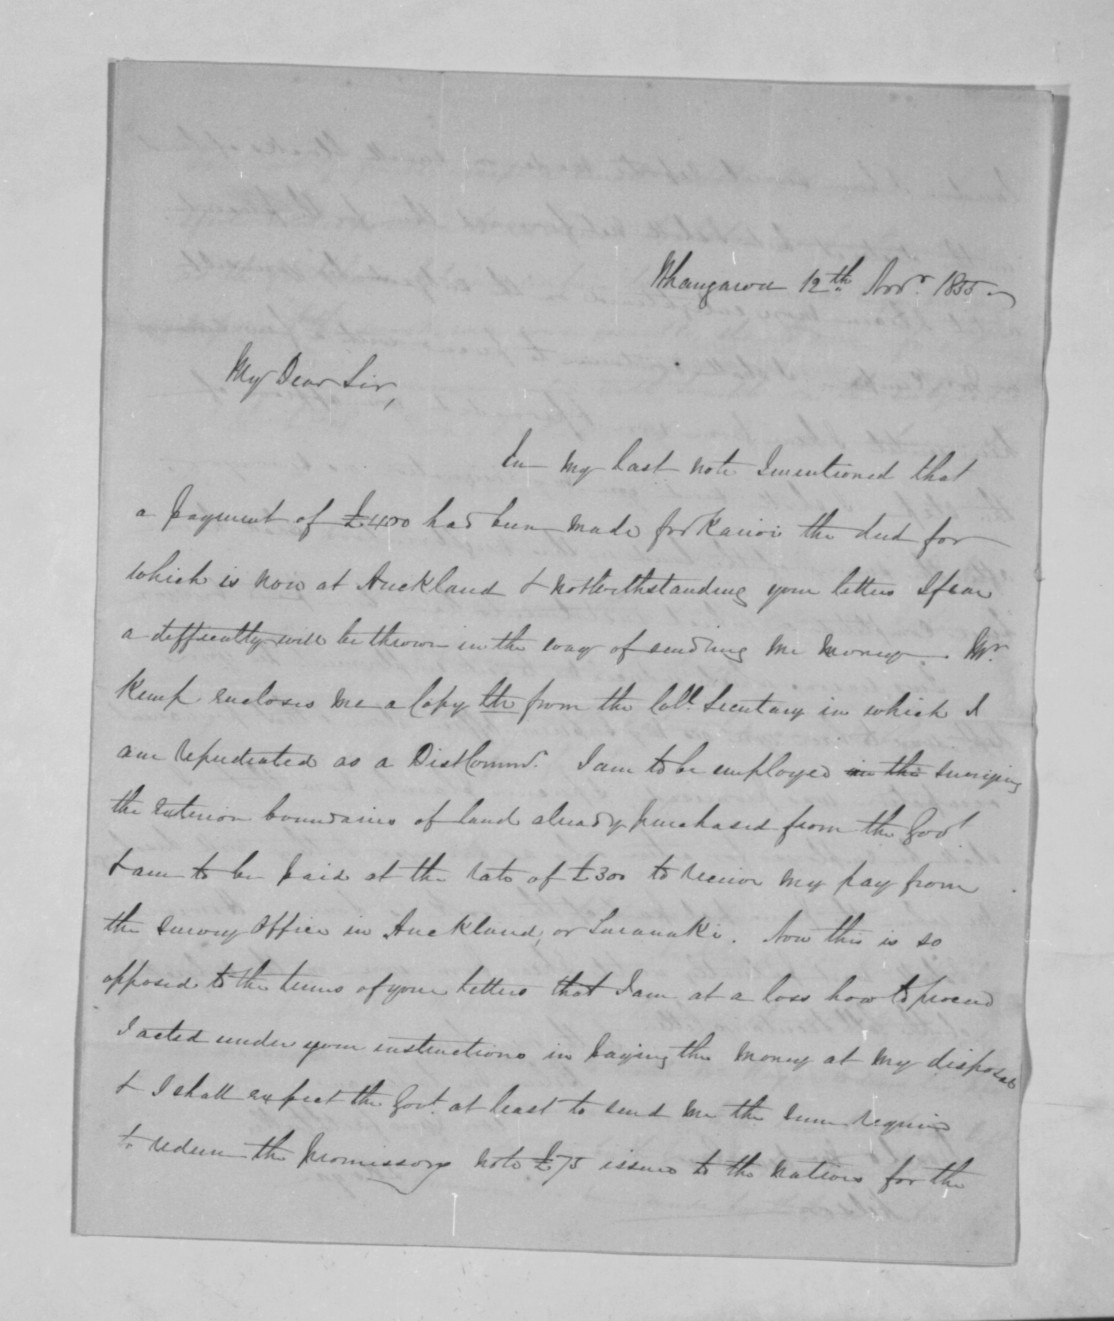 Whangaroa 12th Novr. 1855
My Dear Sir,
In my last note I mentioned that
a payment of £400 had been made for Kaioi the deed for
which is now at Auckland & notwithstanding your letters I fear
a difficulty will be thrown in the way of sending me money. Mr
Kemp encloses me a Copy ltr from the Coll. Secretary in which I
am repudiated as a Dist Commr. I am to be employed in the surveying
the exterior boundaries of land already purchased from the Govt
& am to be paid at the rate of £300 to receive my pay from
the Survey Office in Auckland, or Taranaki. Now this is so
opposed to the terms of your letters that I am at a loss how to proceed
I acted under your instructions in paying the money at my disposal
& I shall expect the Govt. at least to send me the sum required
to redeem the promissory note £75 issued to the natives for the